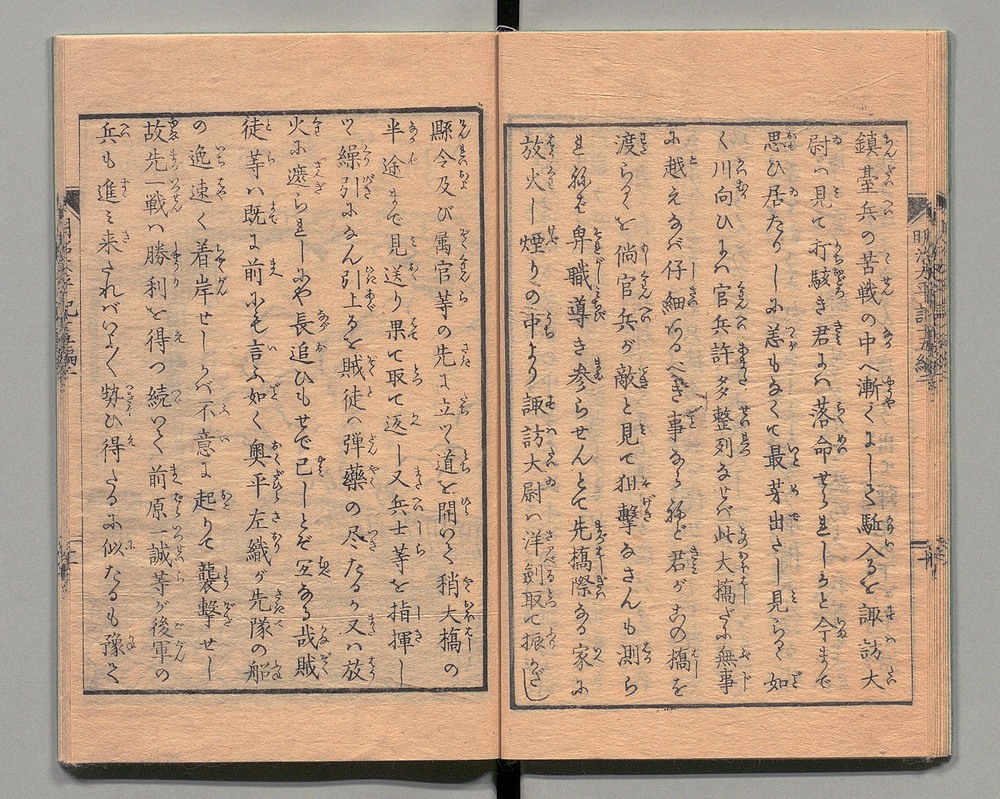 鎮臺兵の苦戦の中へ漸くにして駈入るを諏訪大
尉ハ見て打駭き君にハ落命せられしかと今まで
思ひ居たりしに恙もなくて最芽出さし見らるゝ如
く川向ひにハ官兵許多整列なせバ此大橋だに無事
に越えなバ仔細あるべき事ならねど君が去の橋を
渡らるゝを倘官兵が敵と見て狙撃なさんも測ら
れねバ卑職導き参らせんとて先橋際なる家に
放火し煙りの中より諏訪大尉ハ洋劍取て振かざし
縣令及び属官等の先に立て道を開いて稍大橋の
半途まで見送り果て取て返し又兵士等を指揮し
つゝ繰引になん引上るを賊徒ハ弾藥の尽たるか又ハ放
火に遮られしにや長追ひもせで已しとぞ 哉賊
徒等ハ既に前にも言ふ如く奥平左織が先隊の船
の逸速く着岸せしかバ不意に起りて襲撃せし
故先一戦ハ勝利を得つ続いて前原一誠等が後軍の
兵も進み来たれバいよ〱勢ひ得たるに似たるも豫て